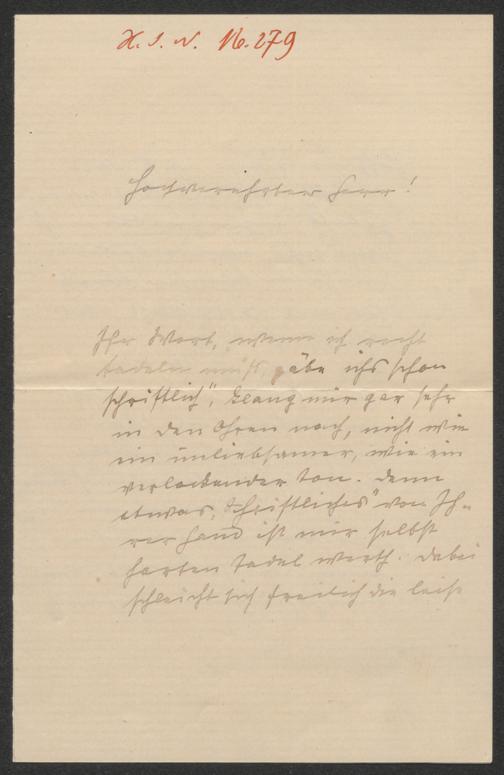 H. I. N. No. 279
Hochverehrter Herr!
Ihr Wort, wenn ich recht
tadeln muß, gäbe ichs schon
schriftlich", klang mir gar sehr
in den Ohren nach, nicht wie
ein unliebsamer, wie ein
verlockender Ton. Denn
etwas „Schriftliches" von Ih-
rer Hand ist mir selbst
harten Tadel werth. Dabei
schleicht sich freilich die leise